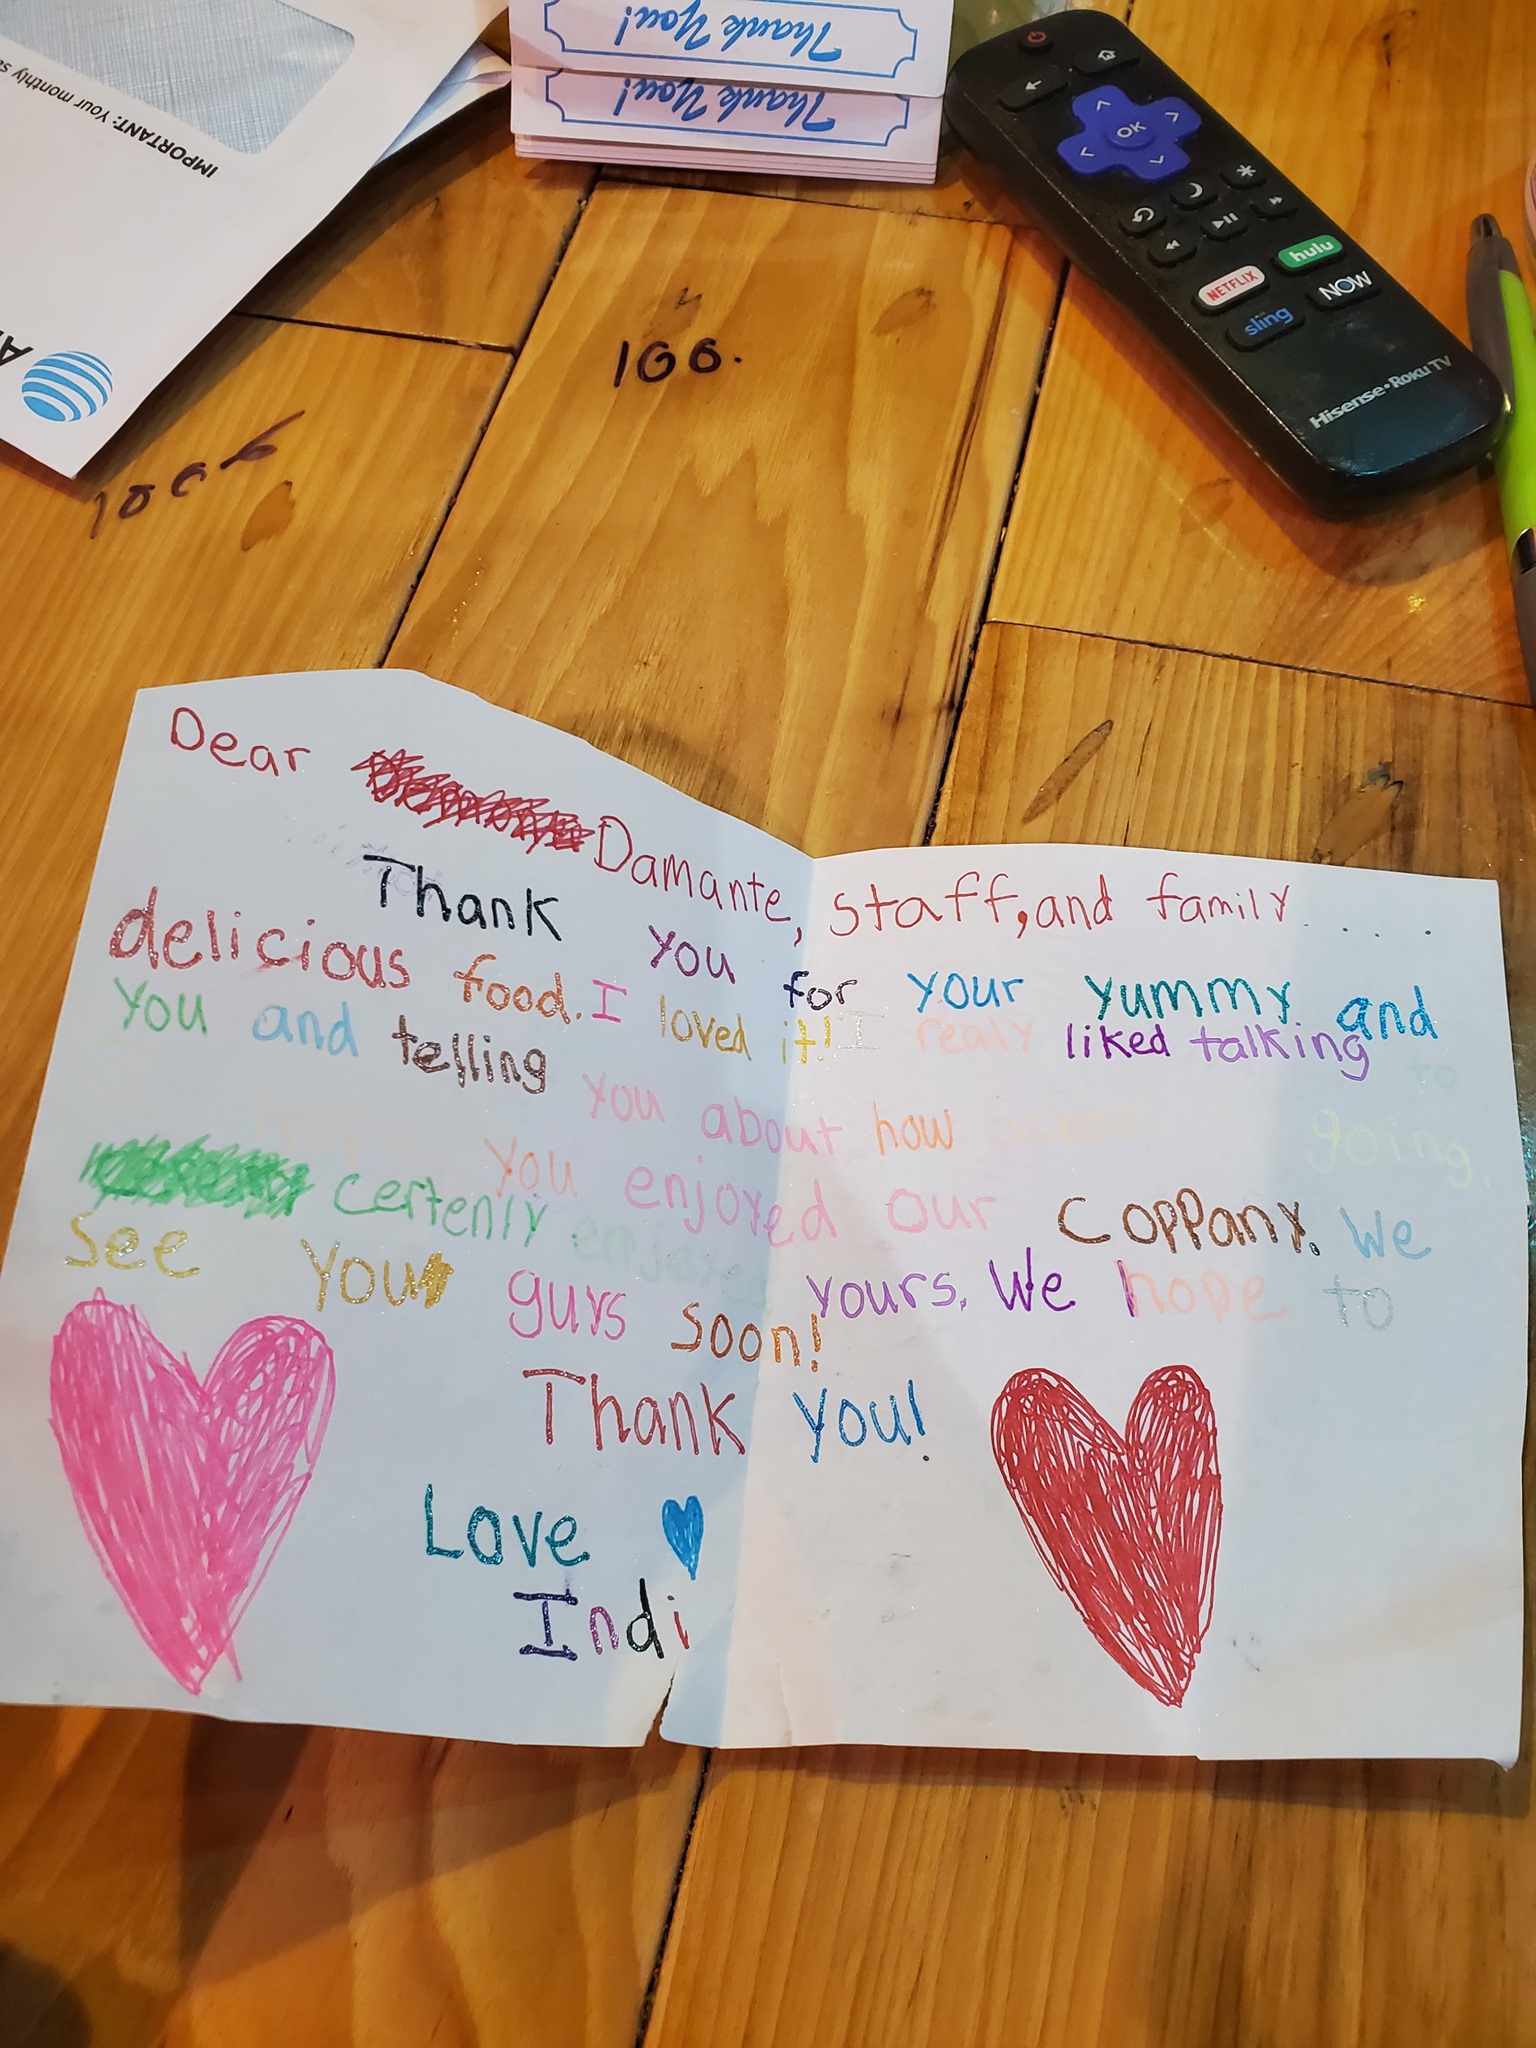 Thank You!
Thank You!
IMPORTANT: Your monthly
OK
NETFLIX
hulu
sling
NOW
Hisense • Roku TV
100.
Dear Damante, staff, and family.....
Thank you for your yummy and
delicious food. I loved it! I realy liked talking to
you and telling you about how going.
you enjoyed our coppany. We
certenly enjoyed yours. We hope to
see you guys soon!
Thank you!
Love
Indi